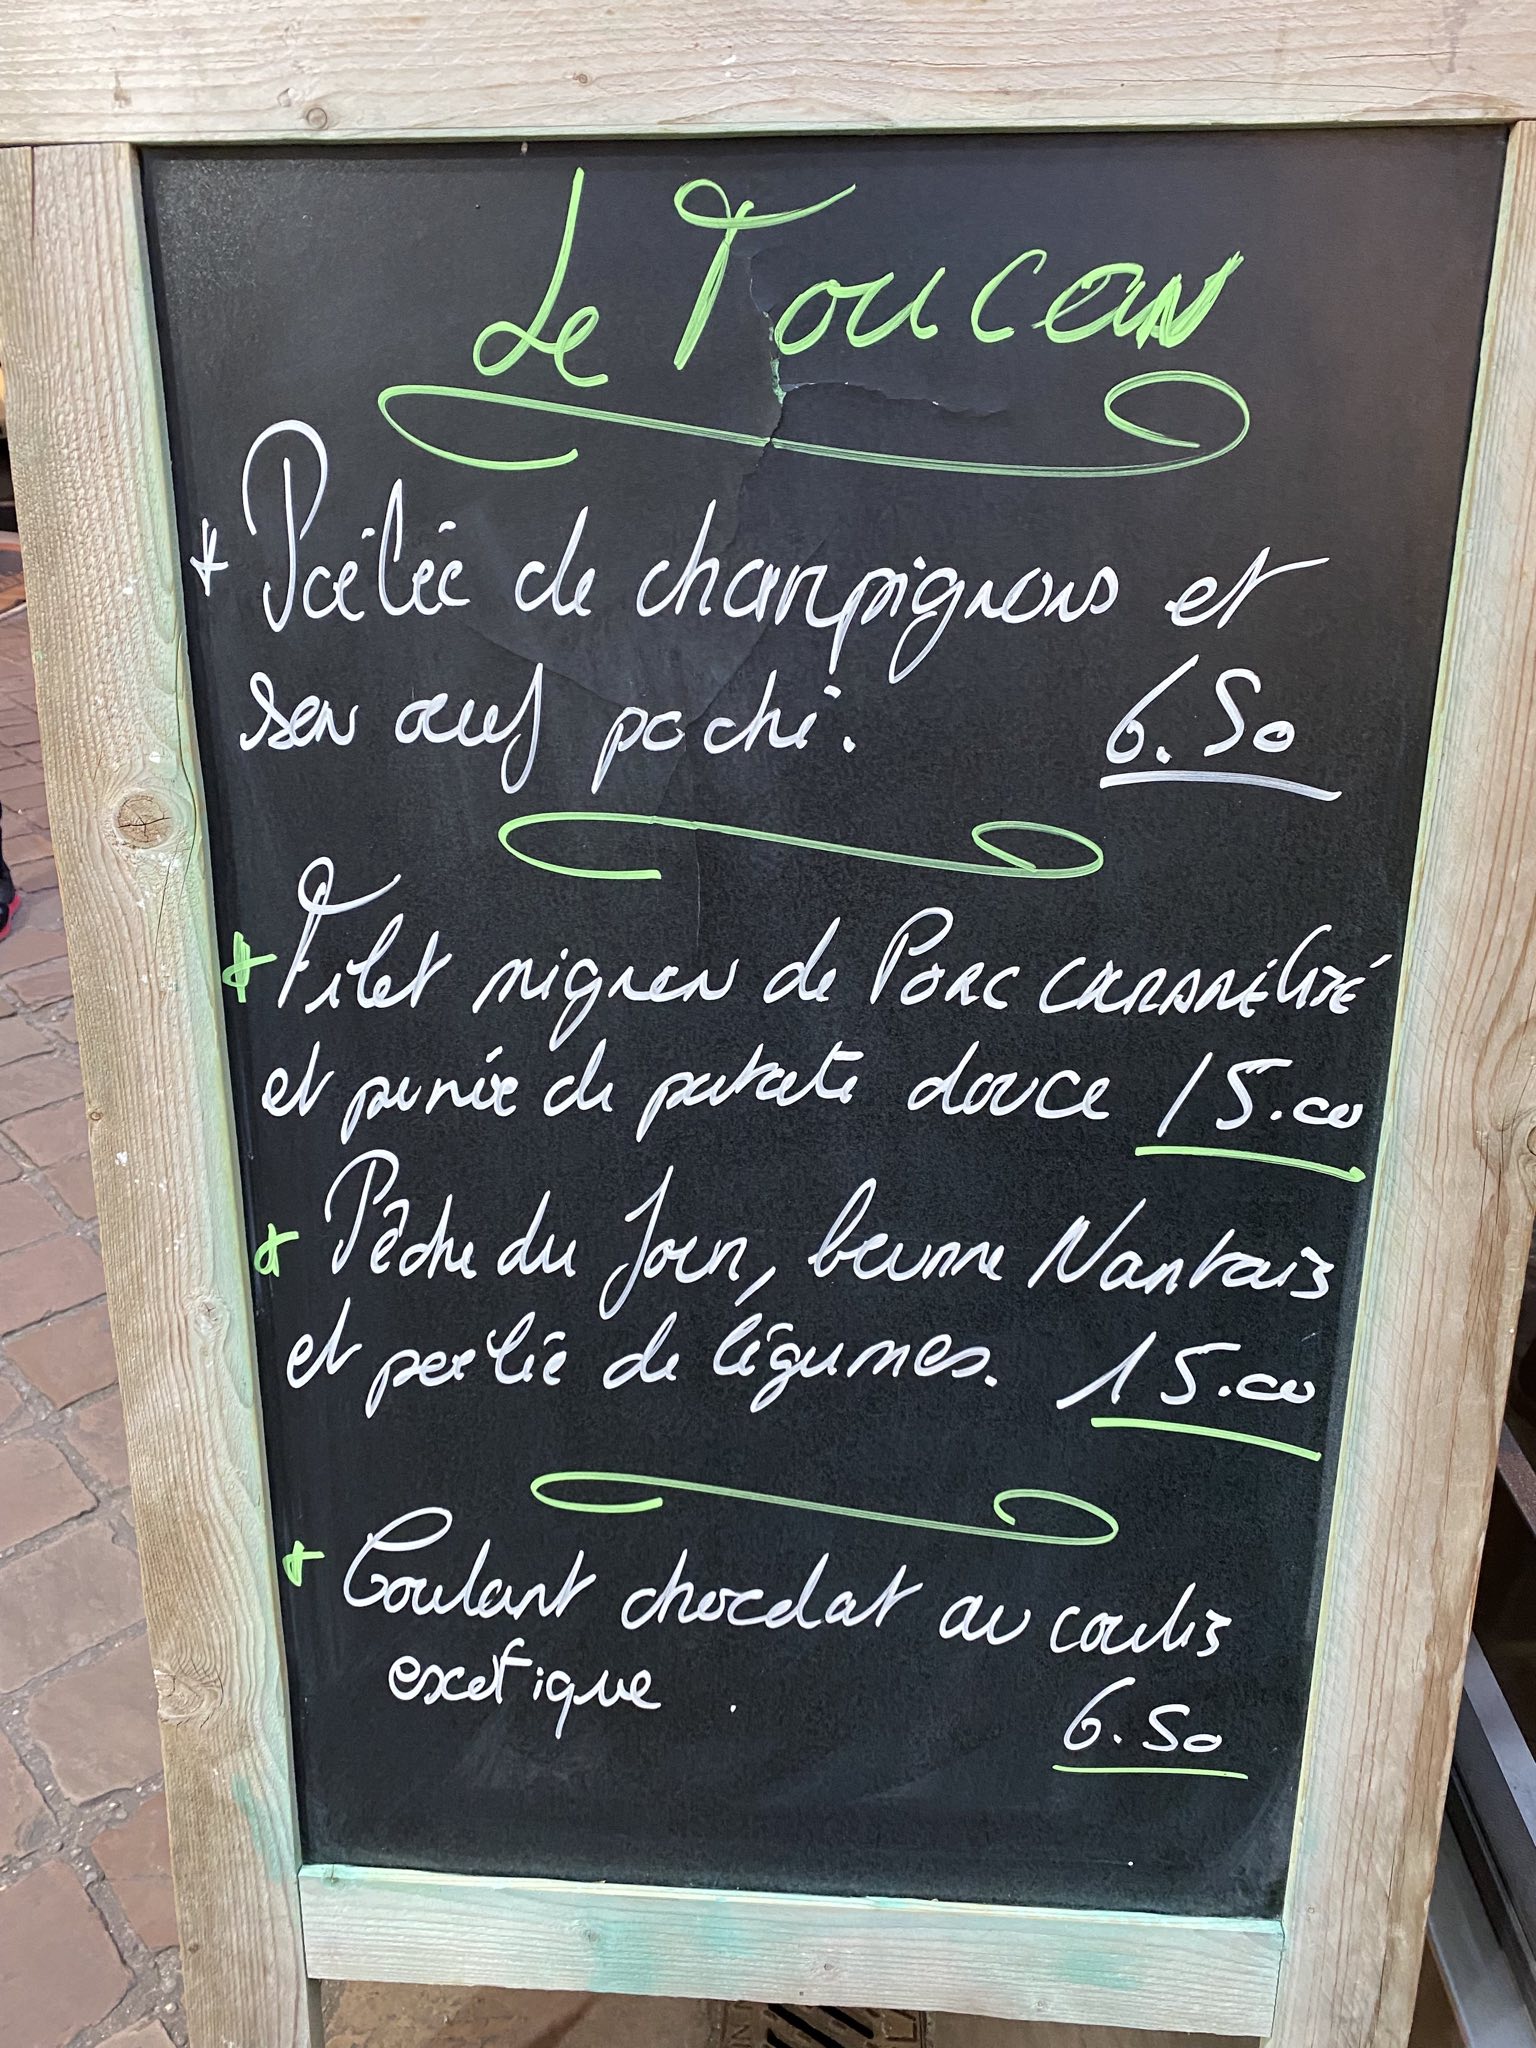 Le Toucan
Poêlée de champignons et
son œuf poché.
6.50
Filet mignon de Porc CARAMÉLISÉ
et purée de patate douce 15.00
Pêche du Jour, beurre Nantais
et poêlée de légumes. 15.00
Coulant chocolat au coulis
exotique.
6.50